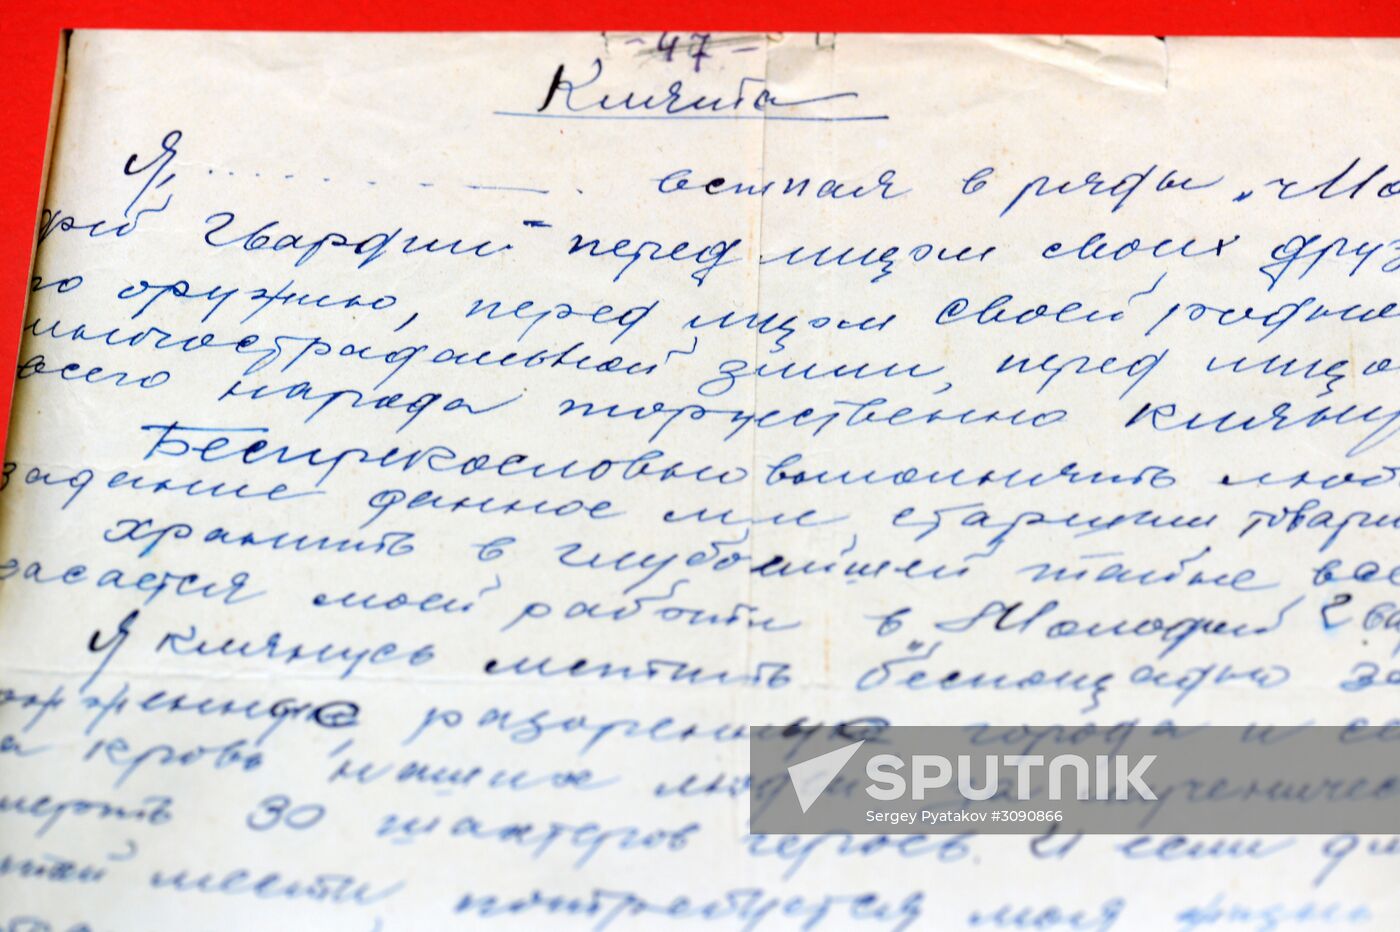 - 47 -
Клятва
Я, вступая в ряды „Мо
дой Гвардии" перед лицом своих друз
по оружию, перед лицом своей родной
многострадальной земли, перед лицо
всего народа торжественно клянус
Беспрекословно выполнять люб
задание данное мне старшим товари
хранить в глубочайшей тайне все
касается моей работы в „Молодой Гвар
Я клянусь мстить беспощадно за
разоренные города и се
а кровь наших людей, за мученичес
мерть 30 шахтеров героев. И если дл
этой мести потребуется моя жизнь
SPUTNIK
Sergey Pyatakov #3090866